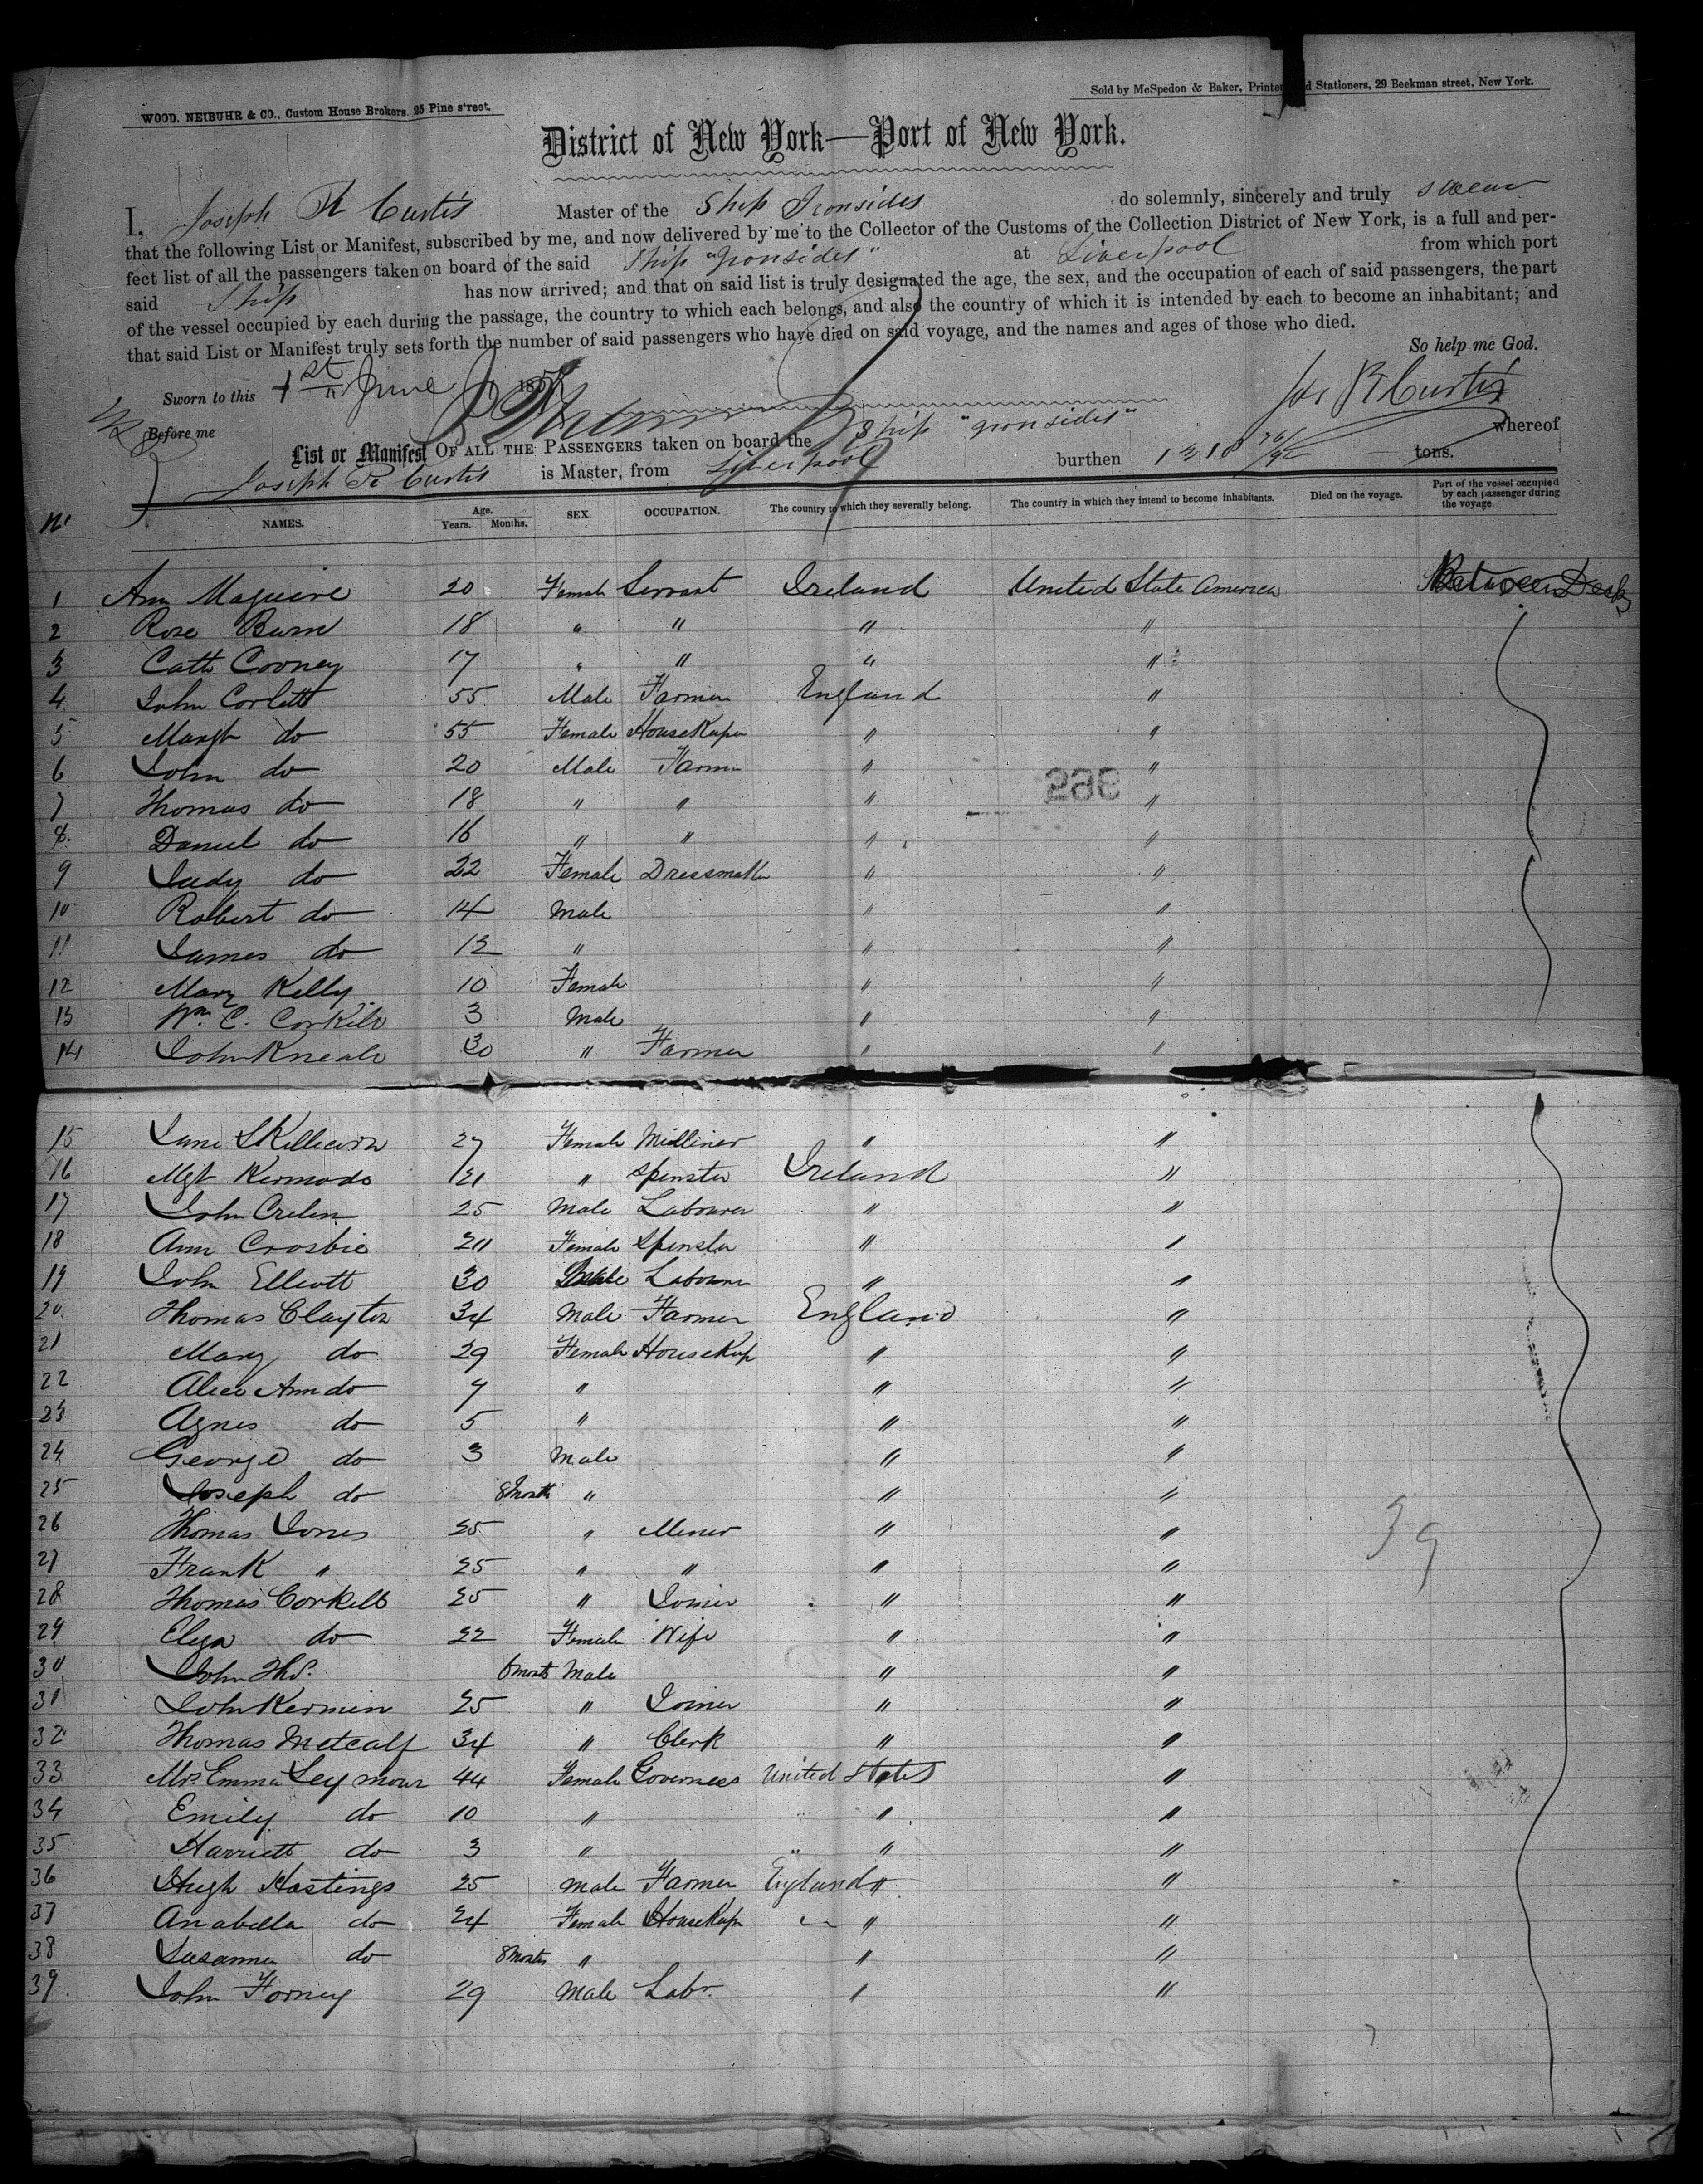 WOOD, NEIBUHR & CO., Custom House Brokers, 25 Pine street.
Sold by McSpedon & Baker, Printe d Stationers, 29 Beekman street, New York.
District of New York—Port of New York.
I, Joseph R Curtis Master of the Ship Ironsides do solemnly, sincerely and truly swear
that the following List or Manifest, subscribed by me, and now delivered by me to the Collector of the Customs of the Collection District of New York, is a full and per-
fect list of all the passengers taken on board of the said Ship "Ironsides" at Liverpool from which port
said Ship has now arrived; and that on said list is truly designated the age, the sex, and the occupation of each of said passengers, the part
of the vessel occupied by each during the passage, the country to which each belongs, and also the country of which it is intended by each to become an inhabitant; and
that said List or Manifest truly sets forth the number of said passengers who have died on said voyage, and the names and ages of those who died.
So help me God.
Sworn to this 1st June 185
Jos R Curtis
Before me
List or Manifest OF ALL THE PASSENGERS taken on board the Ship "Ironsides" whereof
Joseph R Curtis is Master, from Liverpool burthen tons.
No NAMES. Age. Years. Months. SEX. OCCUPATION. The country to which they severally belong. The country in which they intend to become inhabitants. Died on the voyage. Part of the vessel occupied by each passenger during the voyage.
1 Ann Maguire 20 Female Servant Ireland United State America Between Decks
2 Rose Burn 18 " " " "
3 Cath Cooney 17 " " " "
4 John Corlett 55 Male Farmer England "
5 Margt do 55 Female HouseKeper " "
6 John do 20 Male Farmer " "
7 Thomas do 18 " " " "
8 Daniel do 16 " " " "
9 Judy do 22 Female Dressmaker " "
10 Robert do 14 Male " "
11 James do 12 " " "
12 Mary Kelly 10 Female " "
13 Wm. C. Corkill 3 Male " "
14 John Kneale 30 " Farmer " "
15 Jane 27 Female Milliner " "
16 Mgt Kermode 21 " Spinster Ireland "
17 John Crelin 25 Male Labourer " "
18 Ann Crosbie 20 Female Spinster " "
19 John Elliott 30 Male Labourer " "
20 Thomas Clayton 34 Male Farmer England "
21 Mary do 29 Female HouseKep " "
22 Alice Ann do 7 " " "
23 Agnes do 5 " " "
24 George do 3 Male " "
25 Joseph do 8 Month " " "
26 Thomas Jones 25 " Miner " "
27 Frank " 25 " " " "
28 Thomas Corkill 25 " Joiner " "
29 Eliza do 22 Female Wife " "
30 John Ths. 6 Month Male " "
31 John Kermin 25 " Joiner " "
32 Thomas Metcalf 34 " Clerk " "
33 Mrs Emma Seymour 44 Female Governess United States "
34 Emily do 10 " " "
35 Harriett do 3 " " "
36 Hugh Hastings 25 Male Farmer England " "
37 Anabella do 24 Female HouseKepr " "
38 Susanna do 8 Months " " "
39 John Forney 29 Male Labr. " "
39